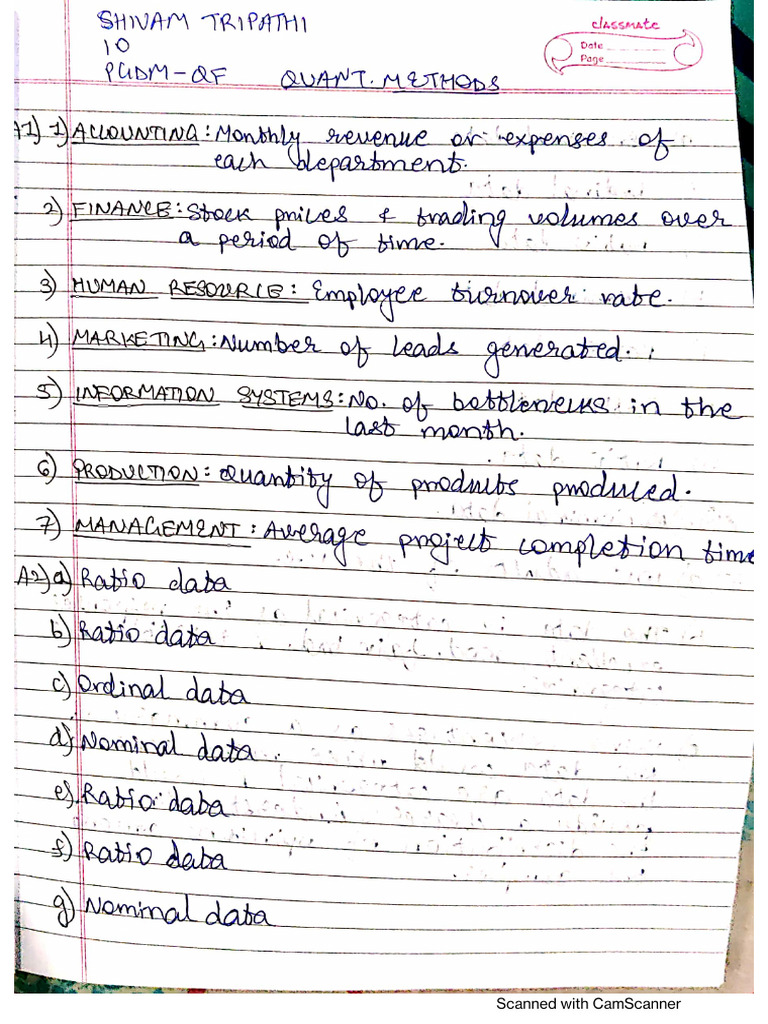 SHIVAM TRIPATHI
10
PGDM-QF QUANT. METHODS
classmate
Date
Page
A1) 1) ACCOUNTING: Monthly revenue or expenses of
each department.
2) FINANCE: Stock prices & trading volumes over
a period of time.
3) HUMAN RESOURCE: Employee turnover rate.
4) MARKETING: Number of leads generated.
5) INFORMATION SYSTEMS: No. of bottlenecks in the
last month.
6) PRODUCTION: Quantity of products produced.
7) MANAGEMENT: Average project completion time
A2) a) Ratio data
b) Ratio data
c) Ordinal data
d) Nominal data
e) Ratio data
f) Ratio data
g) Nominal data
Scanned with CamScanner